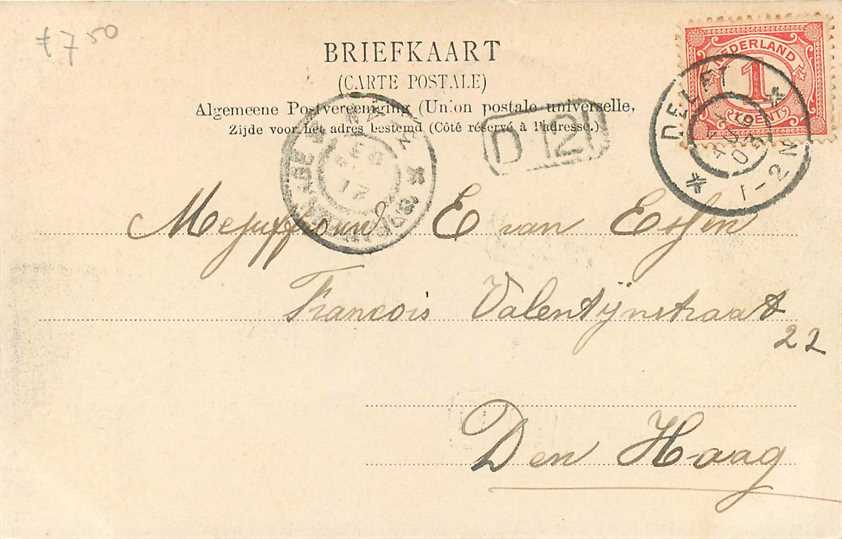 £ 7 50
BRIEFKAART
(CARTE POSTALE)
Algemeene Postvereeniging (Union postale universelle,
Zijde voor het adres bestemd (Côté réservé à l'adresse.)
NEDERLAND
1
CENT
DELFT
1-2N
D 12
Mejuffrouw E van Essen
Francois Valentijnstraat
22
Den Haag